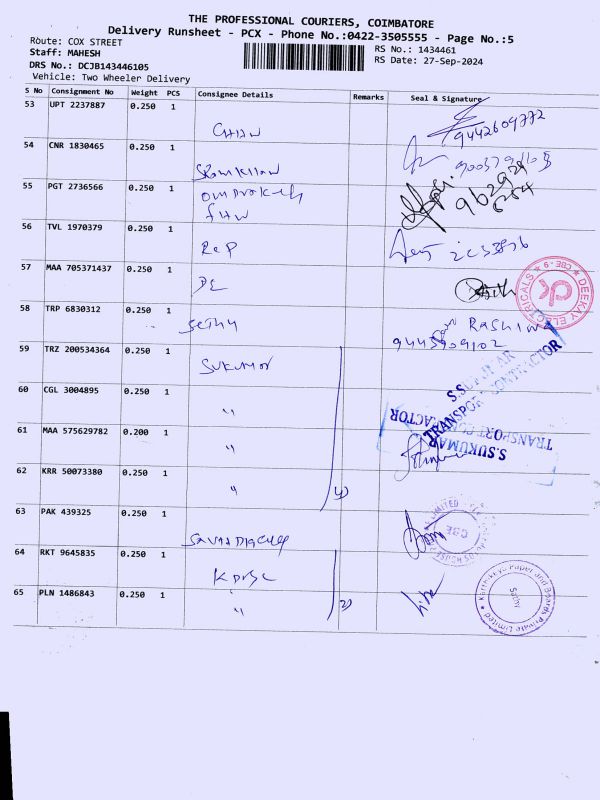 THE PROFESSIONAL COURIERS, COIMBATORE
Delivery Runsheet - PCX - Phone No.:0422-3505555 - Page No.:5
Route: COX STREET
RS No.: 1434461
Staff: MAHESH
RS Date: 27-Sep-2024
DRS No.: DCJB143446105
Vehicle: Two Wheeler Delivery
S No Consignment No Weight PCS Consignee Details Remarks Seal & Signature
53 UPT 2237887 0.250 1
9442609772
54 CNR 1830465 0.250 1
55 PGT 2736566 0.250 1
56 TVL 1970379 0.250 1
57 MAA 705371437 0.250 1
DEEKAY ELECTRICALS ★ CBE-9 ★
dk
58 TRP 6830312 0.250 1 Sethu
59 TRZ 200534364 0.250 1 Sukumar
60 CGL 3004895 0.250 1 "
S.SUKUMAR
TRANSPORT CONTRACTOR
61 MAA 575629782 0.200 1 "
S.SUKUMAR
TRANSPORT CONTRACTOR
62 KRR 50073380 0.250 1 "
4)
63 PAK 439325 0.250 1
CBE
64 RKT 9645835 0.250 1
65 PLN 1486843 0.250 1 "
2)
Karthikeya Paper and Boards Private Limited ★